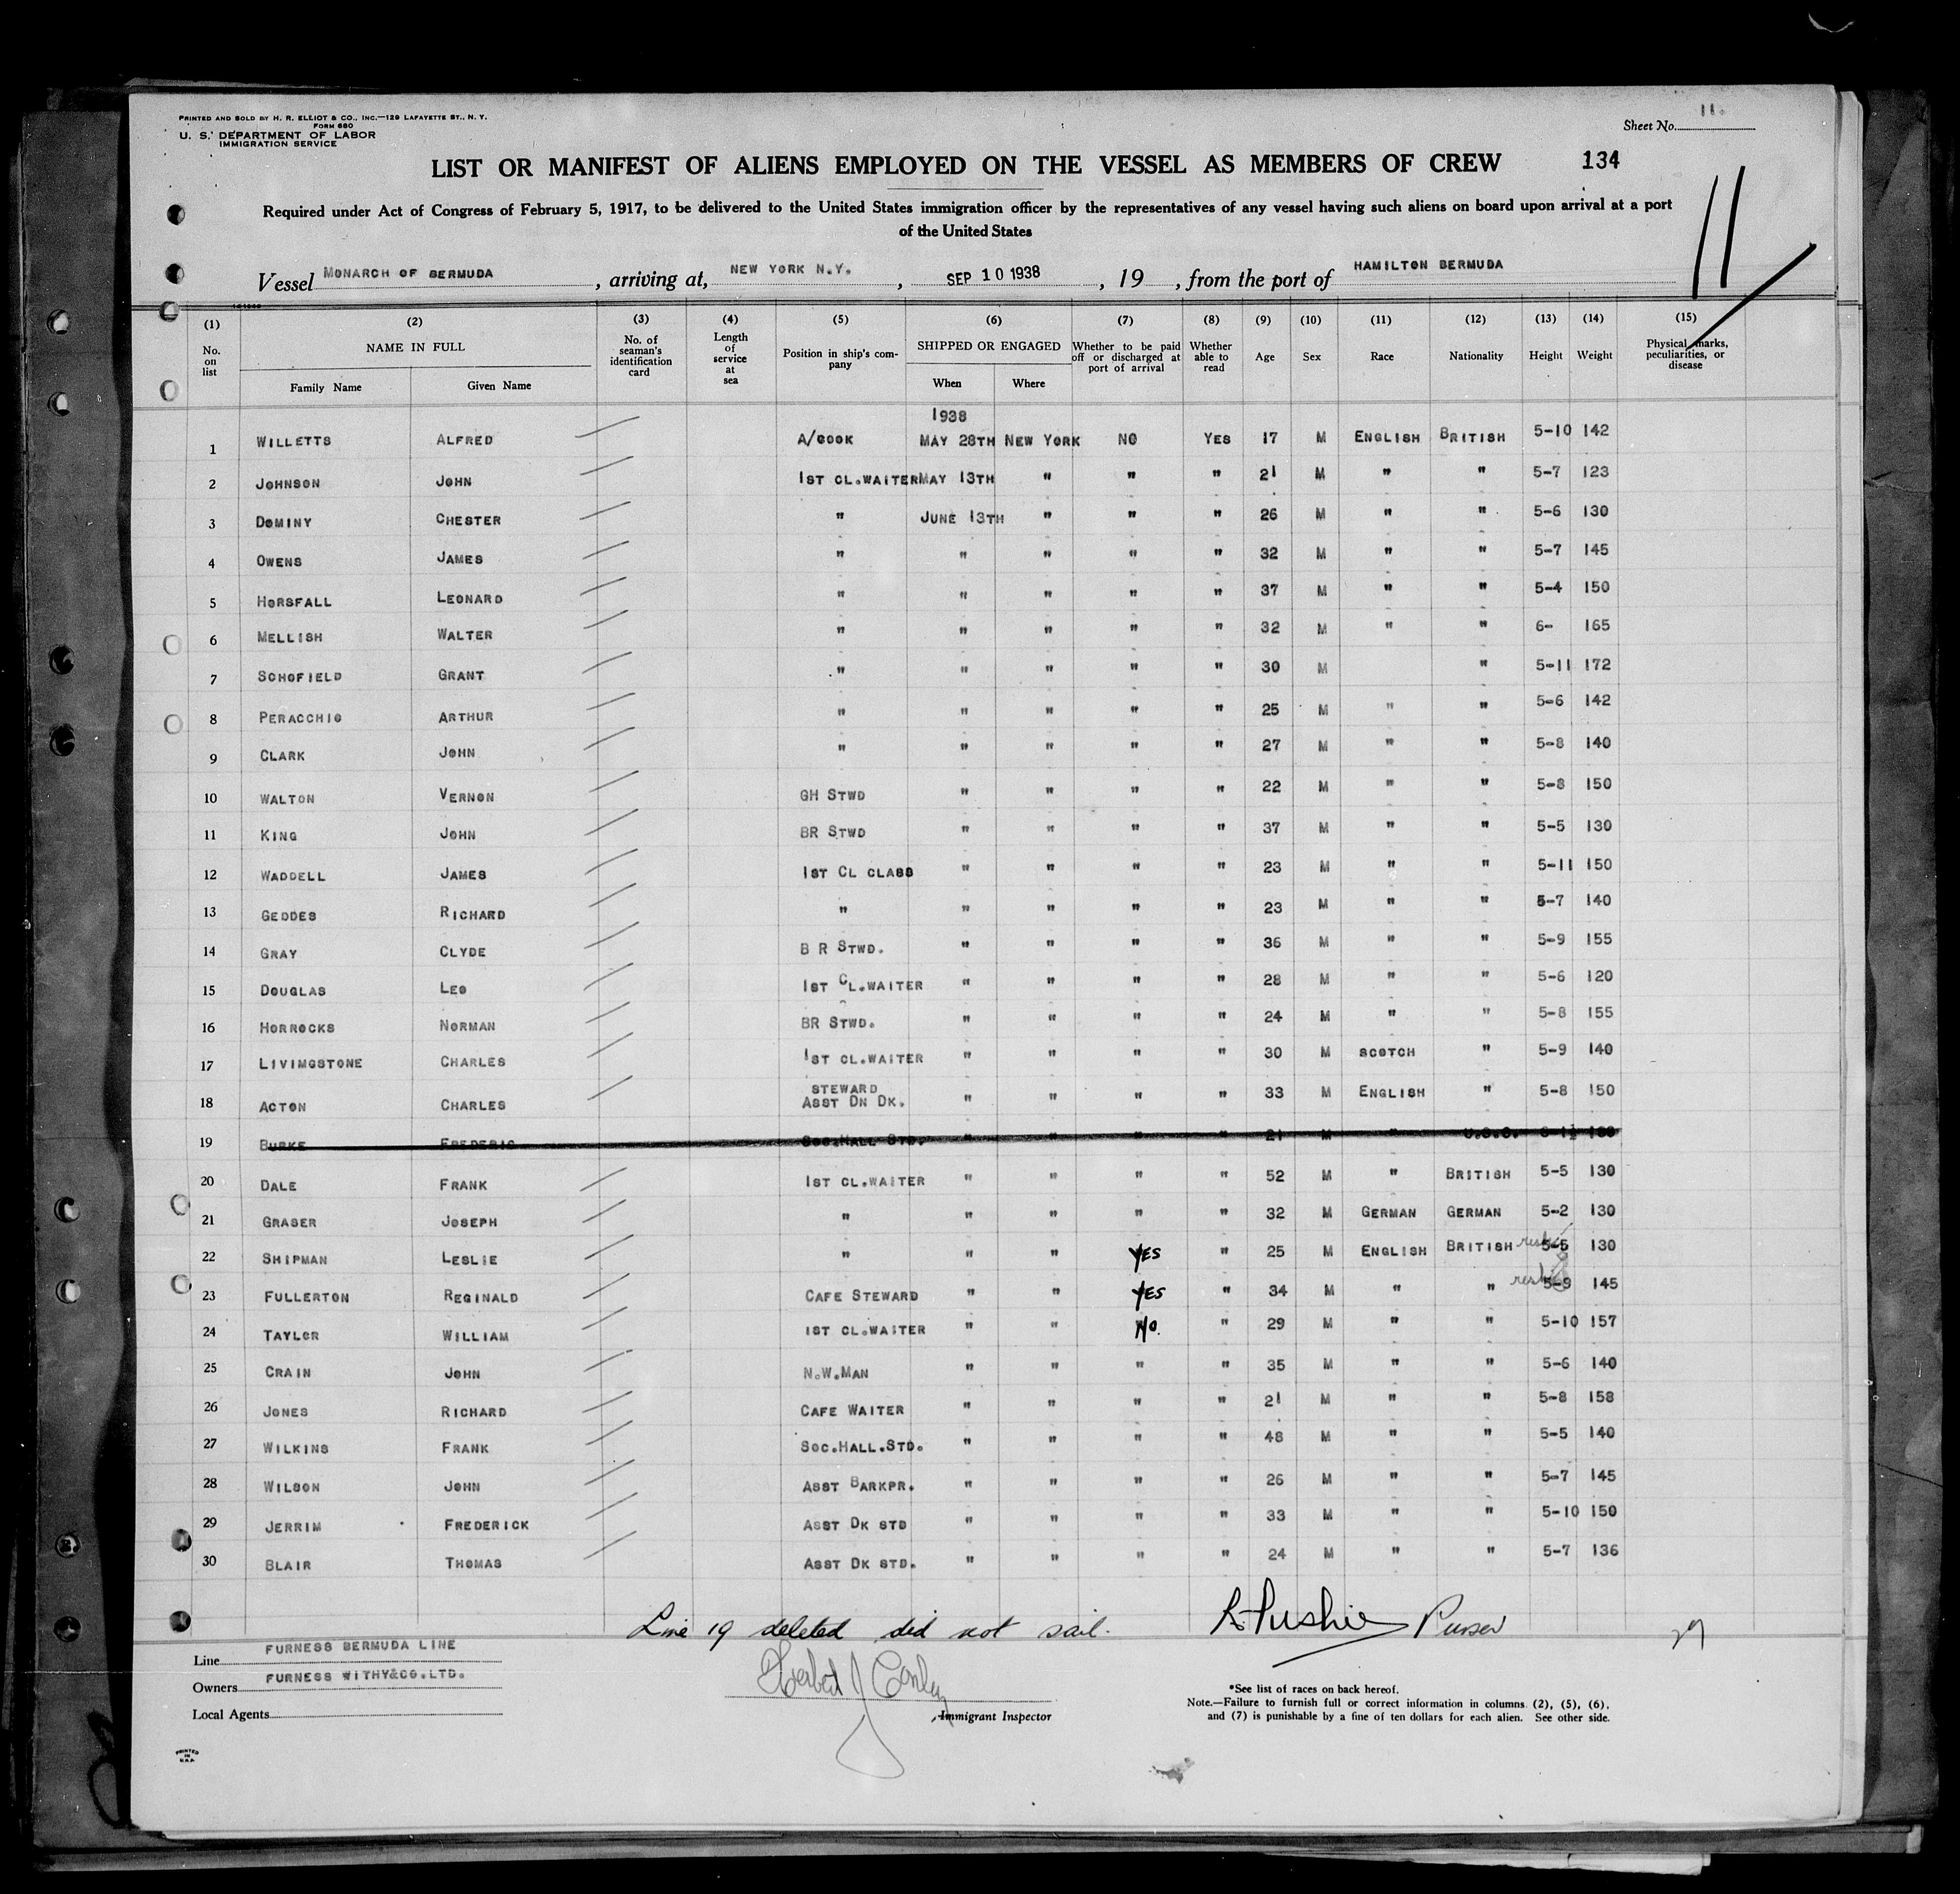 PRINTED AND SOLD BY H. R. ELLIOT & CO., INC.—129 LAFAYETTE ST., N. Y.
FORM 680
U. S. DEPARTMENT OF LABOR
IMMIGRATION SERVICE
Sheet No. 11.
LIST OR MANIFEST OF ALIENS EMPLOYED ON THE VESSEL AS MEMBERS OF CREW 134
11
Required under Act of Congress of February 5, 1917, to be delivered to the United States immigration officer by the representatives of any vessel having such aliens on board upon arrival at a port
of the United States
Vessel MONARCH OF BERMUDA, arriving at, NEW YORK N.Y., SEP 10 1938, 19, from the port of HAMILTON BERMUDA
(1) (2) (3) (4) (5) (6) (7) (8) (9) (10) (11) (12) (13) (14) (15)
No. on list NAME IN FULL Family Name Given Name No. of seaman's identification card Length of service at sea Position in ship's company SHIPPED OR ENGAGED When Where Whether to be paid off or discharged at port of arrival Whether able to read Age Sex Race Nationality Height Weight Physical marks, peculiarities, or disease
1938
1 WILLETTS ALFRED A/COOK MAY 28TH NEW YORK NO YES 17 M ENGLISH BRITISH 5-10 142
2 JOHNSON JOHN 1ST CL.WAITER MAY 13TH " " " 21 M " " 5-7 123
3 DOMINY CHESTER " JUNE 13TH " " " 26 M " " 5-6 130
4 OWENS JAMES " " " " " 32 M " " 5-7 145
5 HORSFALL LEONARD " " " " " 37 M " " 5-4 150
6 MELLISH WALTER " " " " " 32 M " " 6- 165
7 SCHOFIELD GRANT " " " " " 30 M " 5-11 172
8 PERACCHIO ARTHUR " " " " " 25 M " " 5-6 142
9 CLARK JOHN " " " " " 27 M " " 5-8 140
10 WALTON VERNON GH STWD " " " " 22 M " " 5-8 150
11 KING JOHN BR STWD " " " " 37 M " " 5-5 130
12 WADDELL JAMES 1ST CL CLASS " " " " 23 M " " 5-11 150
13 GEDDES RICHARD " " " " " 23 M " " 5-7 140
14 GRAY CLYDE B R STWD. " " " " 36 M " " 5-9 155
15 DOUGLAS LEO 1ST CL.WAITER " " " " 28 M " " 5-6 120
16 HORROCKS NORMAN BR STWD. " " " " 24 M " " 5-8 155
17 LIVIMGSTONE CHARLES 1ST CL.WAITER " " " " 30 M SCOTCH " 5-9 140
18 ACTON CHARLES STEWARD ASST DN DK. " " " " 33 M ENGLISH " 5-8 150
19 BURKE FREDERIC SOC.HALL STD. " " " " 21 M " U.S.C.
20 DALE FRANK 1ST CL.WAITER " " " " 52 M " BRITISH 5-5 130
21 GRASER JOSEPH " " " " " 32 M GERMAN GERMAN 5-2 130
22 SHIPMAN LESLIE " " " YES " 25 M ENGLISH BRITISH 5-5 130
23 FULLERTON REGINALD CAFE STEWARD " " YES " 34 M " " 5-9 145
24 TAYLOR WILLIAM 1ST CL.WAITER " " No. " 29 M " " 5-10 157
25 CRAIN JOHN N.W.MAN " " " " 35 M " " 5-6 140
26 JONES RICHARD CAFE WAITER " " " " 21 M " " 5-8 158
27 WILKINS FRANK SOC.HALL.STD. " " " " 48 M " " 5-5 140
28 WILSON JOHN ASST BARKPR. " " " " 26 M " " 5-7 145
29 JERRIM FREDERICK ASST DK STD " " " " 33 M " " 5-10 150
30 BLAIR THOMAS ASST DK STD. " " " " 24 M " " 5-7 136
Line 19 deleted did not sail. R. Pushie Purser
29
Line FURNESS BERMUDA LINE
Owners FURNESS WITHY&CO.LTD.
Local Agents
Herbert J Conley
Immigrant Inspector
*See list of races on back hereof.
Note.—Failure to furnish full or correct information in columns (2), (5), (6),
and (7) is punishable by a fine of ten dollars for each alien. See other side.
PRINTED IN U.S.A.